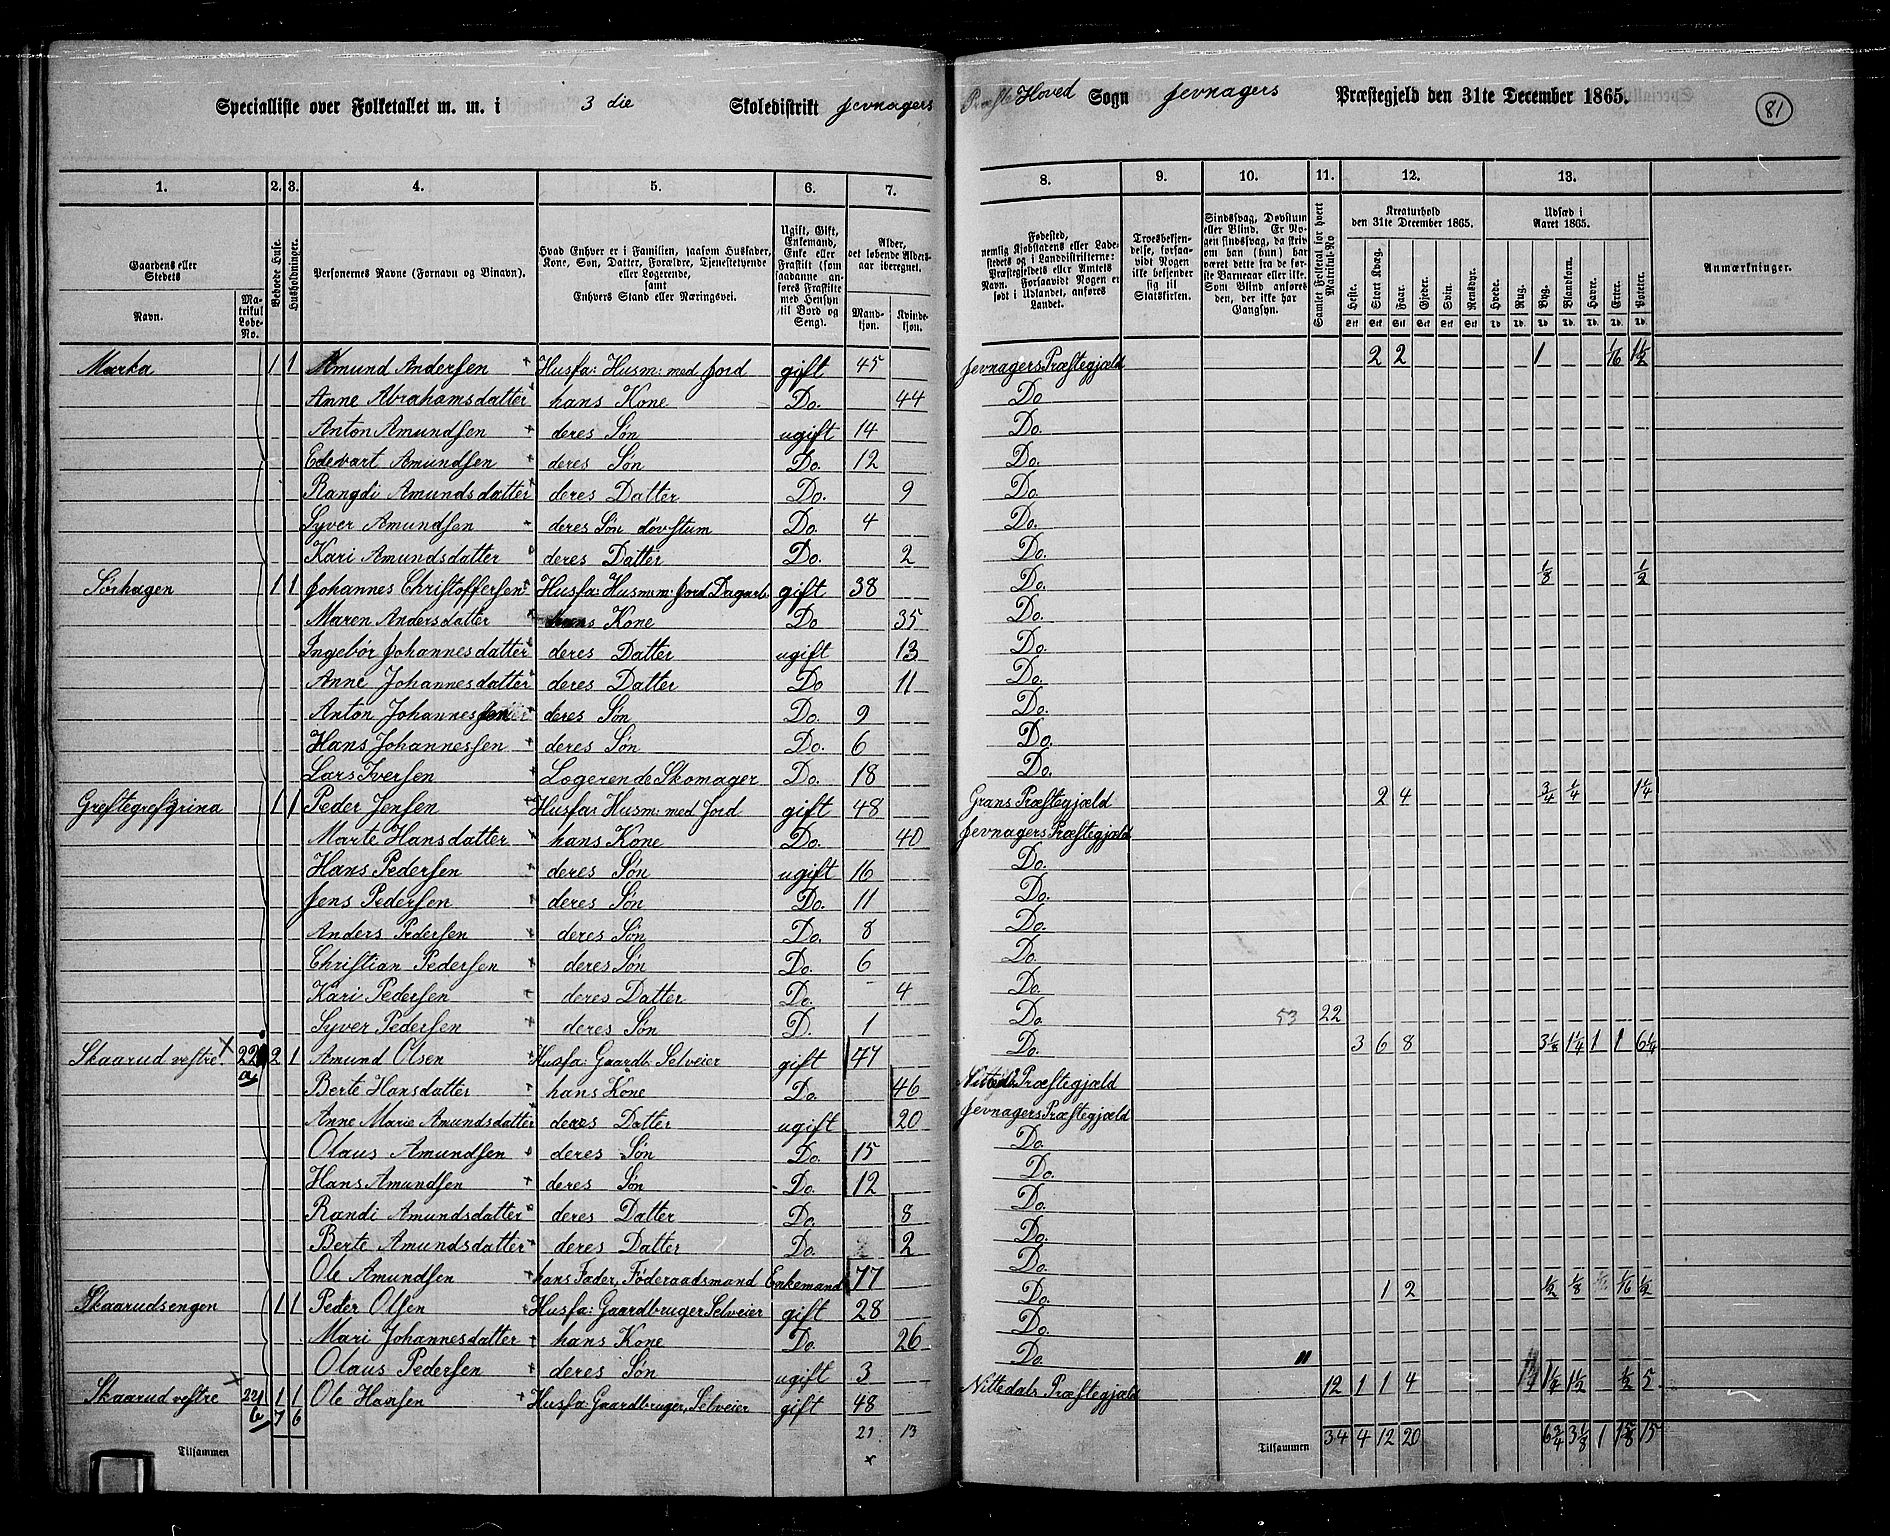 Specialliste over Folketallet m. m. i 3 die Skoledistrikt Jevnagers Hoved Sogn Jevnagers Præstegjeld den 31te December 1865. 81
1. 2. 3. 4. 5. 6. 7. 8. 9. 10. 11. 12. 13.
Gaardens eller Stedets
Navn. Matrikul Løbe-No.
Beboede Huse.
Husholdninger.
Personernes Navne (Fornavn og Binavn).
Hvad Enhver er i Familien, saasom Husfader, Kone, Søn, Datter, Forældre, Tjenestetyende eller Logerende, samt Enhvers Stand eller Næringsvei.
Ugift, Gift, Enkemand, Enke eller Fraskilt (som saadanne anføres Fraskilte med Hensyn til Bord og Seng).
Alder, det løbende Alders-aar iberegnet.
Mandkjøn. Kvindekjøn.
Fødested, nemlig Kjøbstadens eller Ladestedets og i Landdistrikterne: Præstegjeldets eller Amtets Navn. Forsaavidt Nogen er født i Udlandet, anføres Landet.
Troesbekjendelse, forsaavidt Nogen ikke bekjender sig til Statskirken.
Sindssvag, Døvstum eller Blind. Er Nogen sindssvag, da skriv om han (hun) har været dette fra de første Barneaar eller ikke. Som Blind anføres den, der ikke har Gangsyn.
Samlet Folketal for hvert Matrikul-No
Kreaturhold den 31te December 1865.
Heste. Stort Kvæg. Faar. Gjeder. Svin. Rensdyr.
Udsæd i Aaret 1865.
Hvede. Rug. Byg. Blandkorn. Havre. Erter. Poteter.
Anmærkninger.
Marka 1 1 Amund Andersen Husfa: Husm: med Jord gift 45 Jevnagers Præstegjæld 2 2 1 1/16 1 1/2
Anne Abrahamsdatter hans Kone Do. 44 Do
Anton Amundsen deres Søn ugift 14 Do.
Edevart Amundsen deres Søn Do. 12 Do.
Rangdi Amundsdatter deres Datter Do. 9 Do.
Syver Amundsen deres Søn døvstum Do. 4 Do.
Kari Amundsdatter deres Datter Do. 2 Do.
Sørhagen 1 1 Johannes Christoffersen Husfa: Husm m: Jord Dagarb. gift 38 Do. 1/8 1/2
Maren Andersdatter hans Kone Do 35 Do.
Ingebør Johannesdatter deres Datter ugift 13 Do.
Anne Johannesdatter deres Datter Do 11 Do.
Anton Johannessen deres Søn Do. 9 Do.
Hans Johannessen deres Søn Do. 6 Do.
Lars Iversen Logerende Skomager Do. 18 Do.
Greftegrefgrina 1 1 Peder Jensen Husfa: Husm: med Jord gift 48 Grans Præstegjæld 2 4 3/4 1/4 1 1/4
Marte Hansdatter hans Kone Do. 40 Jevnagers Præstegjæld
Hans Pedersen deres Søn ugift 16 Do.
Jens Pedersen deres Søn Do. 11 Do.
Anders Pedersen deres Søn Do. 8 Do.
Christian Pedersen deres Søn Do. 6 Do.
Kari Pedersen deres Datter Do. 4 Do.
Syver Pedersen deres Søn D. 1 Do. 53 22
Skaarud vestre 22 a 2 1 Amund Olsen Husfa: Gaardb. Selveier gift 47 Do. 3 6 8 3 1/8 1 1/4 1 1 6 1/4
Berte Hansdatter hans Kone Do. 46 Nittedals Præstegjæld
Anne Marie Amundsdatter deres Datter ugift 20 Jevnagers Præstegjæld
Olaus Amundsen deres Søn Do. 15 Do.
Hans Amundsen deres Søn Do. 12 Do.
Randi Amundsdatter deres Datter Do. 8 Do.
Berte Amundsdatter deres Datter Do. 2 Do.
Ole Amundsen hans Fader, Föderaadsmand Enkemand 77 Do.
Skaarudsengen 1 1 Peder Olsen Husfa: Gaardbruger Selveier gift 28 Do. 1 2 1/2 1/8 1/16 1/2
Mari Johannesdatter hans Kone Do. 26 Do.
Olaus Pedersen deres Søn ugift 3 Do.
Skaarud vestre 221 b 1 1 Ole Hansen Husfa: Gaardbruger, Selveier gift 48 Nittedals Præstegjæld 12 1 1 4 1 1/4 1 1/2 1/2 5
Tilsammen 7 6 21 13 Tilsammen 34 4 12 20 6 3/4 3 1/8 1 1 5/8 15